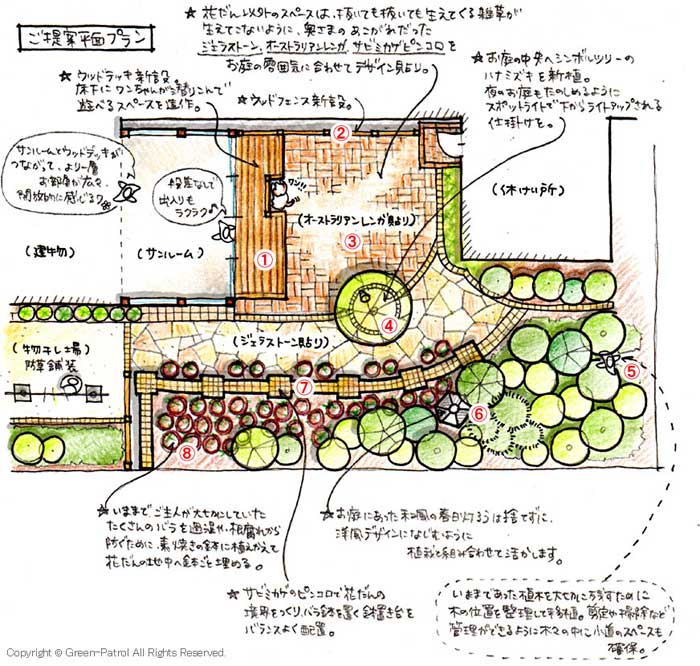 ご提案平面プラン
★ 花だん以外のスペースは、抜いても抜いても生えてくる雑草が
生えてこないように、奥さまのあこがれだった
ジェラストーン、オーストラリアンレンガ、サビミカゲピンコロを
お庭の雰囲気に合わせてデザイン貼り。
★ ウッドデッキ新設。
床下にワンちゃんが潜りこんで
遊べるスペースを造作。
★ ウッドフェンス新設。
★ お庭の中央へシンボルツリーの
ハナミズキを新植。
夜のお庭もたのしめるように
スポットライトで下からライトアップされる
仕掛けを。
サンルームとウッドデッキが
つながって、より一層
お部屋が広く、
開放的に感じる♪
段差なしで
出入りも
ラクラク♪
ワン!!
②
①
③
④
⑤
⑥
⑦
⑧
(建物)
(サンルーム)
(オーストラリアンレンガ貼り)
(休けい所)
(物干し場)
防草舗装
(ジェラストーン貼り)
★ いままでご主人が大せつにしていた
たくさんのバラを過湿や、根腐れから
防ぐために、素焼きの鉢に植えかえて
花だんの地中へ鉢ごと埋める。
★ お庭にあった和風の春日灯ろうは捨てずに、
洋風デザインになじむように
植栽と組み合わせて活かします。
★ サビミカゲのピンコロで花だんの
境界をつくり、バラ鉢を置く鉢置き台を
バランスよく配置。
いままであった植木を大せつにのこすために
木の位置を整理して移植。剪定や掃除など
管理ができるように木々の中に小道のスペースも
確保。
Copyright © Green-Patrol All Rights Reserved.